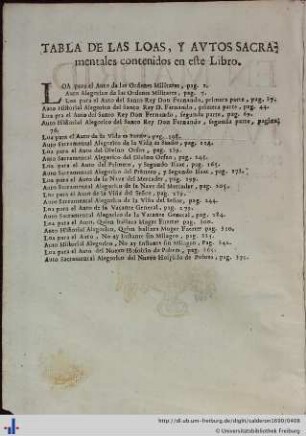 TABLA DE LAS LOAS, Y AVTOS SACRA-
mentales contenidos en este Libro.
LOA para el Auto de las Ordenes Militares, pag. 1.
Auto Alegorico de las Ordenes Militares, pag. 7.
Loa para el Auto del Santo Rey Don Fernando, primera parte, pag. 37.
Auto Historial Alegorico del Santo Rey D. Fernando, primera parte, pag. 44.
Loa para el Auto del Santo Rey Don Fernando, segunda parte, pag. 69.
Auto Historial Alegorico del Santo Rey Don Fernando, segunda parte, pagina
76.
Loa para el Auto de la Vida es Sueño, pag. 108.
Auto Sacramental Alegorico de la Vida es Sueño, pag.
Loa para el Auto del Divino Orfeo, pag.
Auto Sacramental Alegorico del Divino Orfeo, pag.
Loa para el Auto del Primero, y Segundo Isaac, pag. 165.
Auto Sacramental Alegorico del Primero, y Segundo Isaac, pag.
Loa para el Auto de la Nave del Mercader, pag. 199.
Auto Sacramental Alegorico de la Nave del Mercader, pag. 205.
Loa para el Auto de la Viña del Señor, pag.
Auto Sacramental Alegorico de la Viña del Señor, pag. 244.
Loa para el Auto de la Vacante General, pag. 279.
Auto Sacramental Alegorico de la Vacante General, pag. 284.
Loa para el Auto, Quien hallara Muger Fuerte, pag.
Auto Historial Alegorico, Quien hallara Muger Fuerte, pag.
Loa para el Auto, No ay Instante sin Milagro, pag.
Auto Historial Alegorico, No ay Instante sin Milagro, Pag.
Loa para el Auto del Nuevo Hospicio de Pobres, pag. 365.
Auto Sacramental Alegorico del Nuevo Hospicio de Pobres, pag. 371.
http://dl.ub.uni-freiburg.de/diglit/calderon1690/0409
© Universitätsbibliothek Freiburg